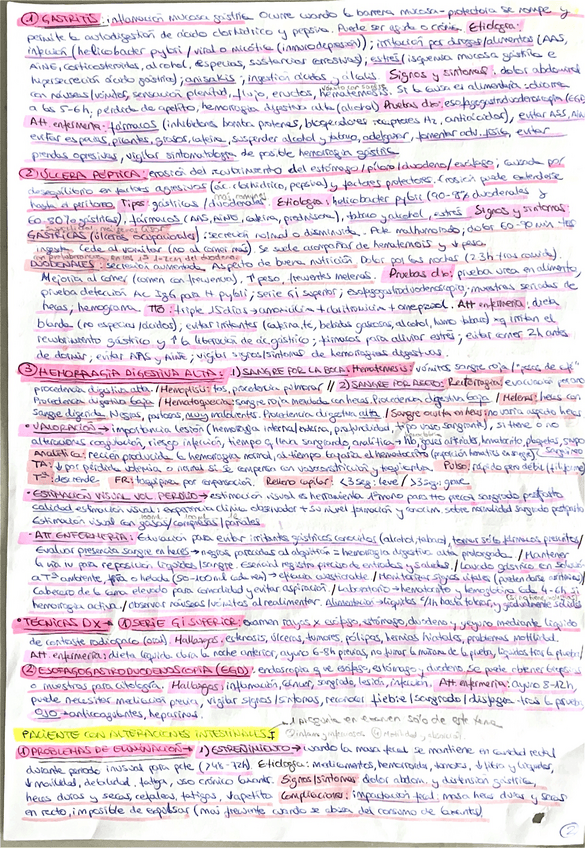 ① GASTRITIS: inflamación mucosa gástrica. Ocurre cuando la barrera mucosa-protectora se rompe y
permite la autodigestión de ácido clorhídrico y pepsina. Puede ser aguda o crónica. Etiología:
infección (helicobacter pylori / viral o micótica (inmunodepresión)); irritación por drogas/alimentos (AAS,
AINE, corticosteroides, alcohol, especias, sustancias corrosivas), estrés/isquemia mucosa gástrica e
hipersecreción ácido gástrica); anisakis; ingestión ácidos y Signos y síntomas: dolor abdominal
con náuseas/vómitos, sensación plenitud, flujo, eructos, hematemesis. Si la causa es alimentaria:
a las 5-6h, pérdida de apetito, hemorragia digestiva alta (alcohol) Pruebas dx: esofagogastroduodenoscopia (EGD)
Att. enfermería: fármacos (inhibidores bomba protones, bloqueadores receptores H2, antiácidos), evitar AAS,
evitar especias, picantes, grasas, cafeína, suspender alcohol y tabaco, adelgazar, fomentar evitar
prendas opresivas, vigilar sintomatología de posible hemorragia gástrica
② ÚLCERA PÉPTICA: erosión del recubrimiento del estómago/píloro/duodeno/esófago; causada por
desequilibrio en factores agresivos (ác. clorhídrico, pepsina) y factores protectores. Erosión puede extenderse
hasta el peritoneo. Tipos: gástricas/duodenales Etiología: helicobacter pylori (90-95% duodenales y
60-80% gástricas), fármacos (AAS, AINE, cafeína, prednisona), tabaco y alcohol, estrés Signos y síntomas
GÁSTRICAS secreción normal o disminuida. Pcte malnutrido; dolor 60-90 min tras
ingesta. Cede al vomitar (no al comer más). Se suele acompañar de hematemesis y ↓ peso.
DUODENALES: secreción aumentada. Aspecto de buena nutrición. Dolor por las noches (2-3h tras comida).
Mejoría al comer (comen con frecuencia). ↑ peso, frecuentes melenas. Pruebas dx: prueba urea en aliento,
prueba detección Ac IgG para H pylori; serie GI superior; esofagogastroduodenoscopia; muestras seriadas de
heces, hemograma. TTO: triple 15 días → amoxicilina + claritromicina + omeprazol. Att enfermería: dieta
blanda (no especias/ácidos), evitar irritantes (cafeína, té, bebidas gaseosas, alcohol, humo tabaco) → irritan el
recubrimiento gástrico y ↑ la liberación de ác. gástrico; fármacos para aliviar estrés; evitar comer 2h antes
de dormir; evitar AAS y AINE; vigilar signos/síntomas de hemorragias digestivas.
③ HEMORRAGIA DIGESTIVA ALTA: 1) SANGRE POR LA BOCA: Hematemesis: vómitos sangre roja/
procedencia digestiva alta. / Hemoptisis: tos, procedencia pulmonar // 2) SANGRE POR RECTO: Rectorragia: evacuación
Procedencia digestiva baja / Hematoquecia: sangre roja mezclada con heces. Procedencia digestiva baja / Melena: heces con
sangre digerida. Negras, pastosas, muy malolientes. Procedencia digestiva alta / Sangre oculta en heces: no varía aspecto heces
• VALORACIÓN → importancia lesión (hemorragia interna/externa, profundidad, tipo vaso sangrante), si tiene o no
alteraciones coagulación, riesgo infección, tiempo q lleva sangrando, analítica → Hb, gases arteriales, hematocrito, plaquetas,
Analítica: recién producida la hemorragia normal, al tiempo bajaría el hematocrito
TA: ↓ por pérdida volemia o normal si se compensa con vasoconstricción y taquicardia. Pulso: rápido pero débil (filiforme)
Tª: desciende FR: taquipnea por compensación. Relleno capilar: <3 seg: leve / >3 seg: grave
• ESTIMACIÓN VISUAL VOL. PERDIDO → estimación visual es herramienta para tto precoz sangrado postparto
calidad estimación visual: experiencia clínica observador + su nivel formación y conocim. sobre normalidad sangrado postparto
Estimación visual con gasas/compresas/pañales.
• Att ENFERMERÍA: Educación para evitar irritantes gástricos conocidos (alcohol, tabaco), tomar sólo fármacos prescritos/
Evaluar presencia sangre en heces → negras parecidas al alquitrán = hemorragia digestiva alta prolongada. / Mantener
vía IV para reposición líquidos/sangre. Esencial registro preciso de entradas y salidas / Lavado gástrico en solución
a Tª ambiente, fría o helada (50-100ml cada vez) → eficacia cuestionable / Monitorizar signos vitales
Cabecero de cama elevado para comodidad y evitar aspiración / Laboratorio → hematocrito y hemoglobina cada 4-6h si
hemorragia activa / observar náuseas/vómitos al realimentar. Alimentación → líquidos /h hasta tolerar, y gradualmente sólidos
• TÉCNICAS DX → ① SERIE GI SUPERIOR: examen rayos x esófago, estómago, duodeno y yeyuno mediante líquido
de contraste radiopaco (oral) Hallazgos: estenosis, úlceras, tumores, pólipos, hernias hiatales, problemas motilidad.
Att. enfermería: dieta líquida clara la noche anterior, ayuno 6-8h previas, no fumar la mañana de la prueba, líquidos tras la prueba
② ESOFAGOGASTRODUODENOSCOPIA (EGD): endoscopia que ve esófago, estómago y duodeno. Se puede obtener biopsia
o muestras para citología. Hallazgos: inflamación, sangrado, lesión, infección. Att enfermería: ayuno 8-12h,
puede necesitar medicación previa, vigilar signos/síntomas, recordar fiebre/sangrado/disfagia tras la prueba
OJO → anticoagulantes, heparinas.
PACIENTE CON ALTERACIONES INTESTINALES I → 1 pregunta en examen sólo de este tema
① PROBLEMAS DE ELIMINACIÓN → 1) ESTREÑIMIENTO → cuando la masa fecal se mantiene en cavidad rectal
durante periodo inusual para pcte (>48-72h) Etiología: medicamentos, hemorroide, tumores, ↓ fibra y líquidos,
↓ movilidad, debilidad, fatiga, uso crónico laxantes. Signos/síntomas: dolor abdom. y distensión gástrica,
heces duras y secas, cefaleas, fatigas, ↓ apetito Complicaciones: impactación fecal, masa heces duras y secas
en recto, imposible de expulsar (más frecuente cuando se abusa del consumo de laxantes).
2